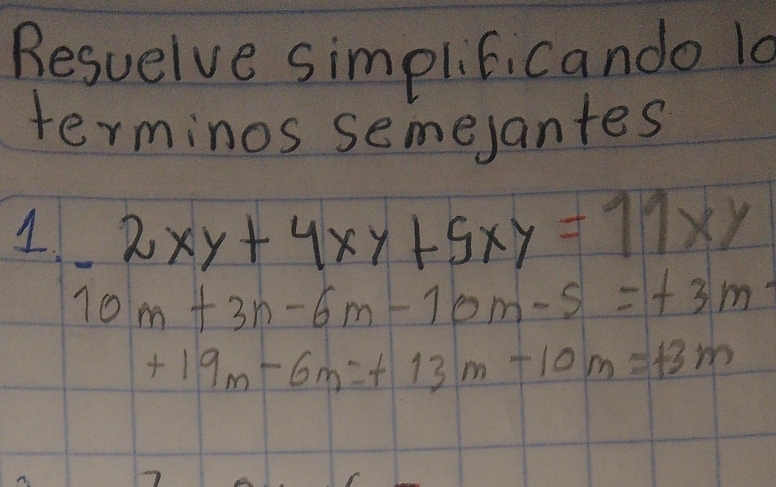 Resuelve simplificando lo
terminos semejantes
1.- 2xy + 4xy + 5xy = 11xy
10m + 3n - 6m - 10m - 5 = +3m -
+ 19m - 6m = + 13m - 10m = +3m